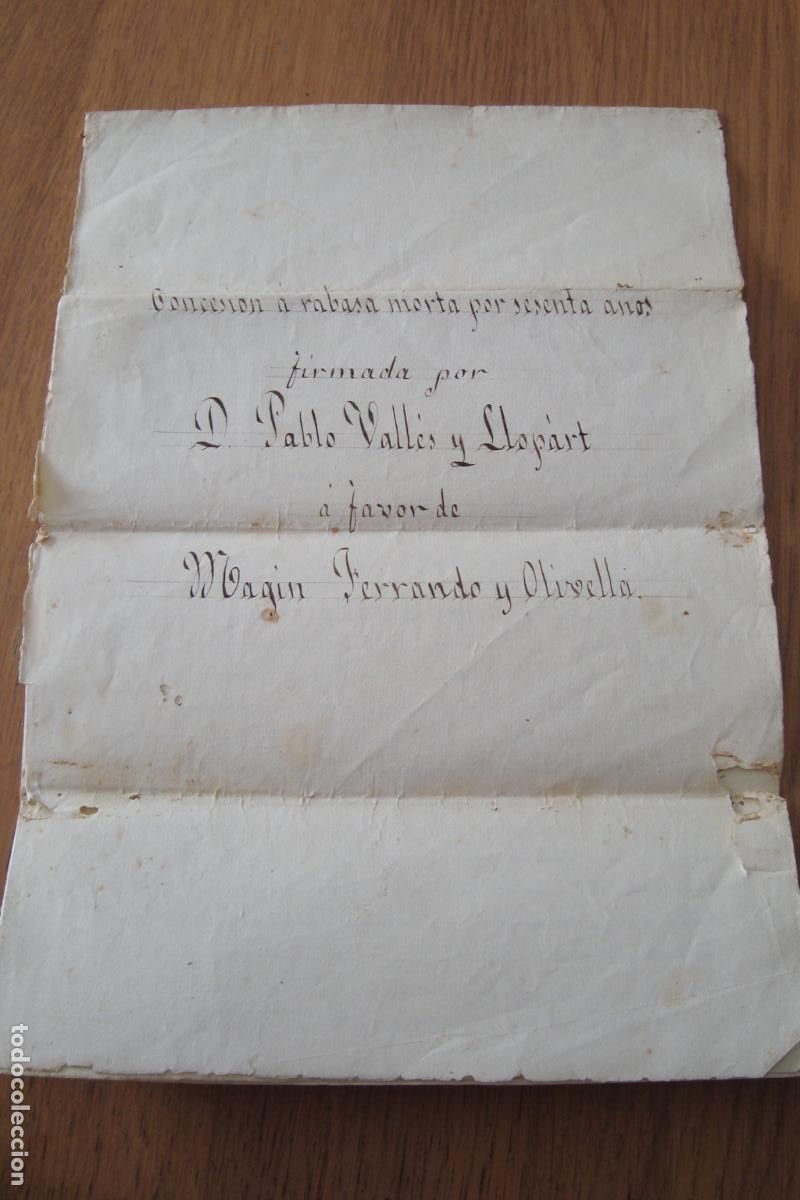 Concesion á rabasa morta por sesenta años
firmada por
D. Pablo Vallés y Llopart
á favor de
Magin Ferrando y Olivella.
todocoleccion